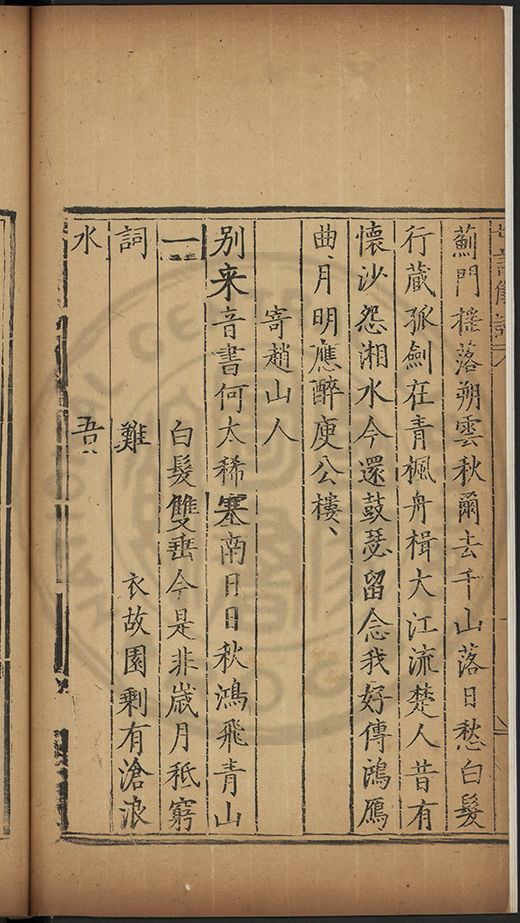 薊門揺落朔雲秋爾去千山落日愁白髮
行藏孤劍在青楓舟楫大江流楚人昔有
懷沙怨湘水今還鼓瑟留念我好傳鴻鴈
曲、月明應醉庾公樓、
寄趙山人
别来音書何太稀塞南日日秋鴻飛青山
一 白髮雙垂今是非歲月秪窮
詞 難 衣故園剩有滄浪
水 吾